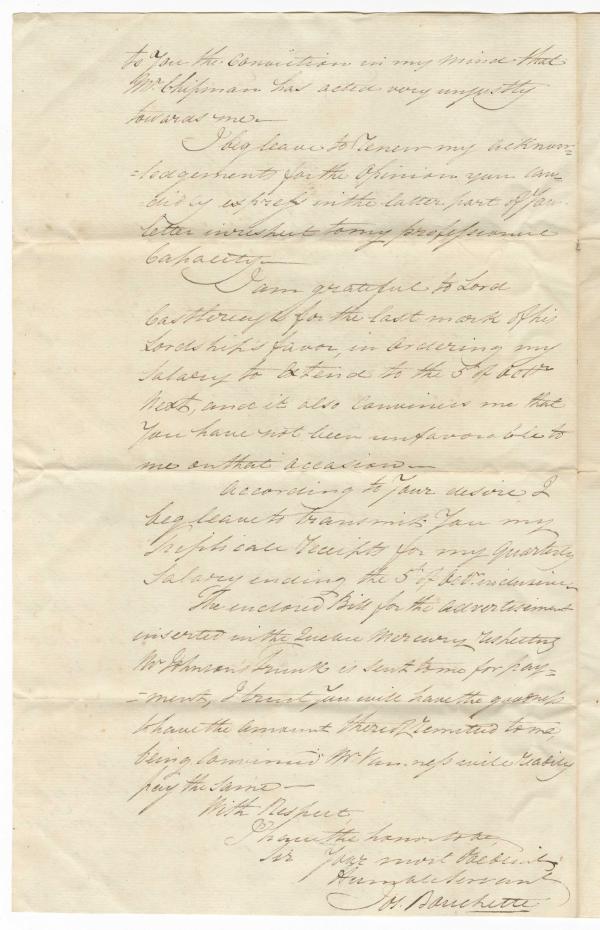 to You the Conviction in my mind that
Mr. Chipman has acted very unjustly
towards me —
I beg leave to renew my acknow=
=ledgements for the Opinion you can=
=didly express in the latter part of Your
letter in respect to my professional
Capacity —
I am grateful to Lord
Castlereagh for the last mark of his
Lordship's favor, in Ordering my
Salary to Extend to the 5th of Octr.
Next, and it also Convinces me that
You have not been unfavorable to
me on that occasion —
According to Your desire, I
beg leave to Transmit You my
Triplicate receipts for my Quarterly
Salary ending the 5th of Octr. inclusive
The enclosed Bill for the advertisement
inserted in the Quebec Mercury respecting
Mr. Johnson's Trunk is sent to me for pay=
=ment, I trust You will have the goodness
to have the amount thereof remitted to me,
being Convinced Mr. Van-ness will readily
pay the Same —
With Respect,
I have the honor to be,
Sir Your most Obedient
Humble Servant
Jos. Bouchette